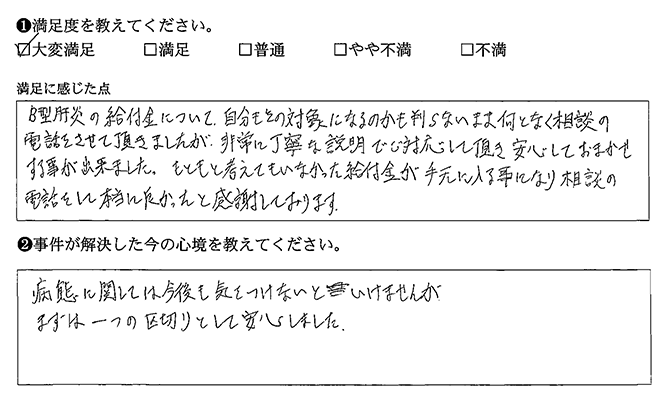 ❶満足度を教えてください。
☑大変満足 □満足 □普通 □やや不満 □不満
満足に感じた点
B型肝炎の給付金について、自分もその対象になるのかも判らないまま何となく相談の
電話をさせて頂きましたが、非常に丁寧な説明でご対応して頂き安心しておまかせ
する事が出来ました。もともと考えてもいなかった給付金が手元に入る事になり相談の
電話をして本当に良かったと感謝しております。
❷事件が解決した今の心境を教えてください。
病態に関しては今後も気をつけないといけませんが
まずは一つの区切りとして安心しました。